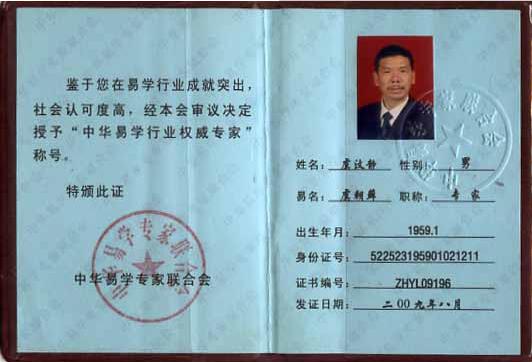 鉴于您在易学行业成就突出，
社会认可度高，经本会审议决定
授予“中华易学行业权威专家”
称号。
特颁此证
中华易学专家联合会
姓名： 性别：男
易名： 职称：专家
出生年月：1959.1
身份证号：522523195901021211
证书编号：ZHYL09196
发证日期：二00九年八月